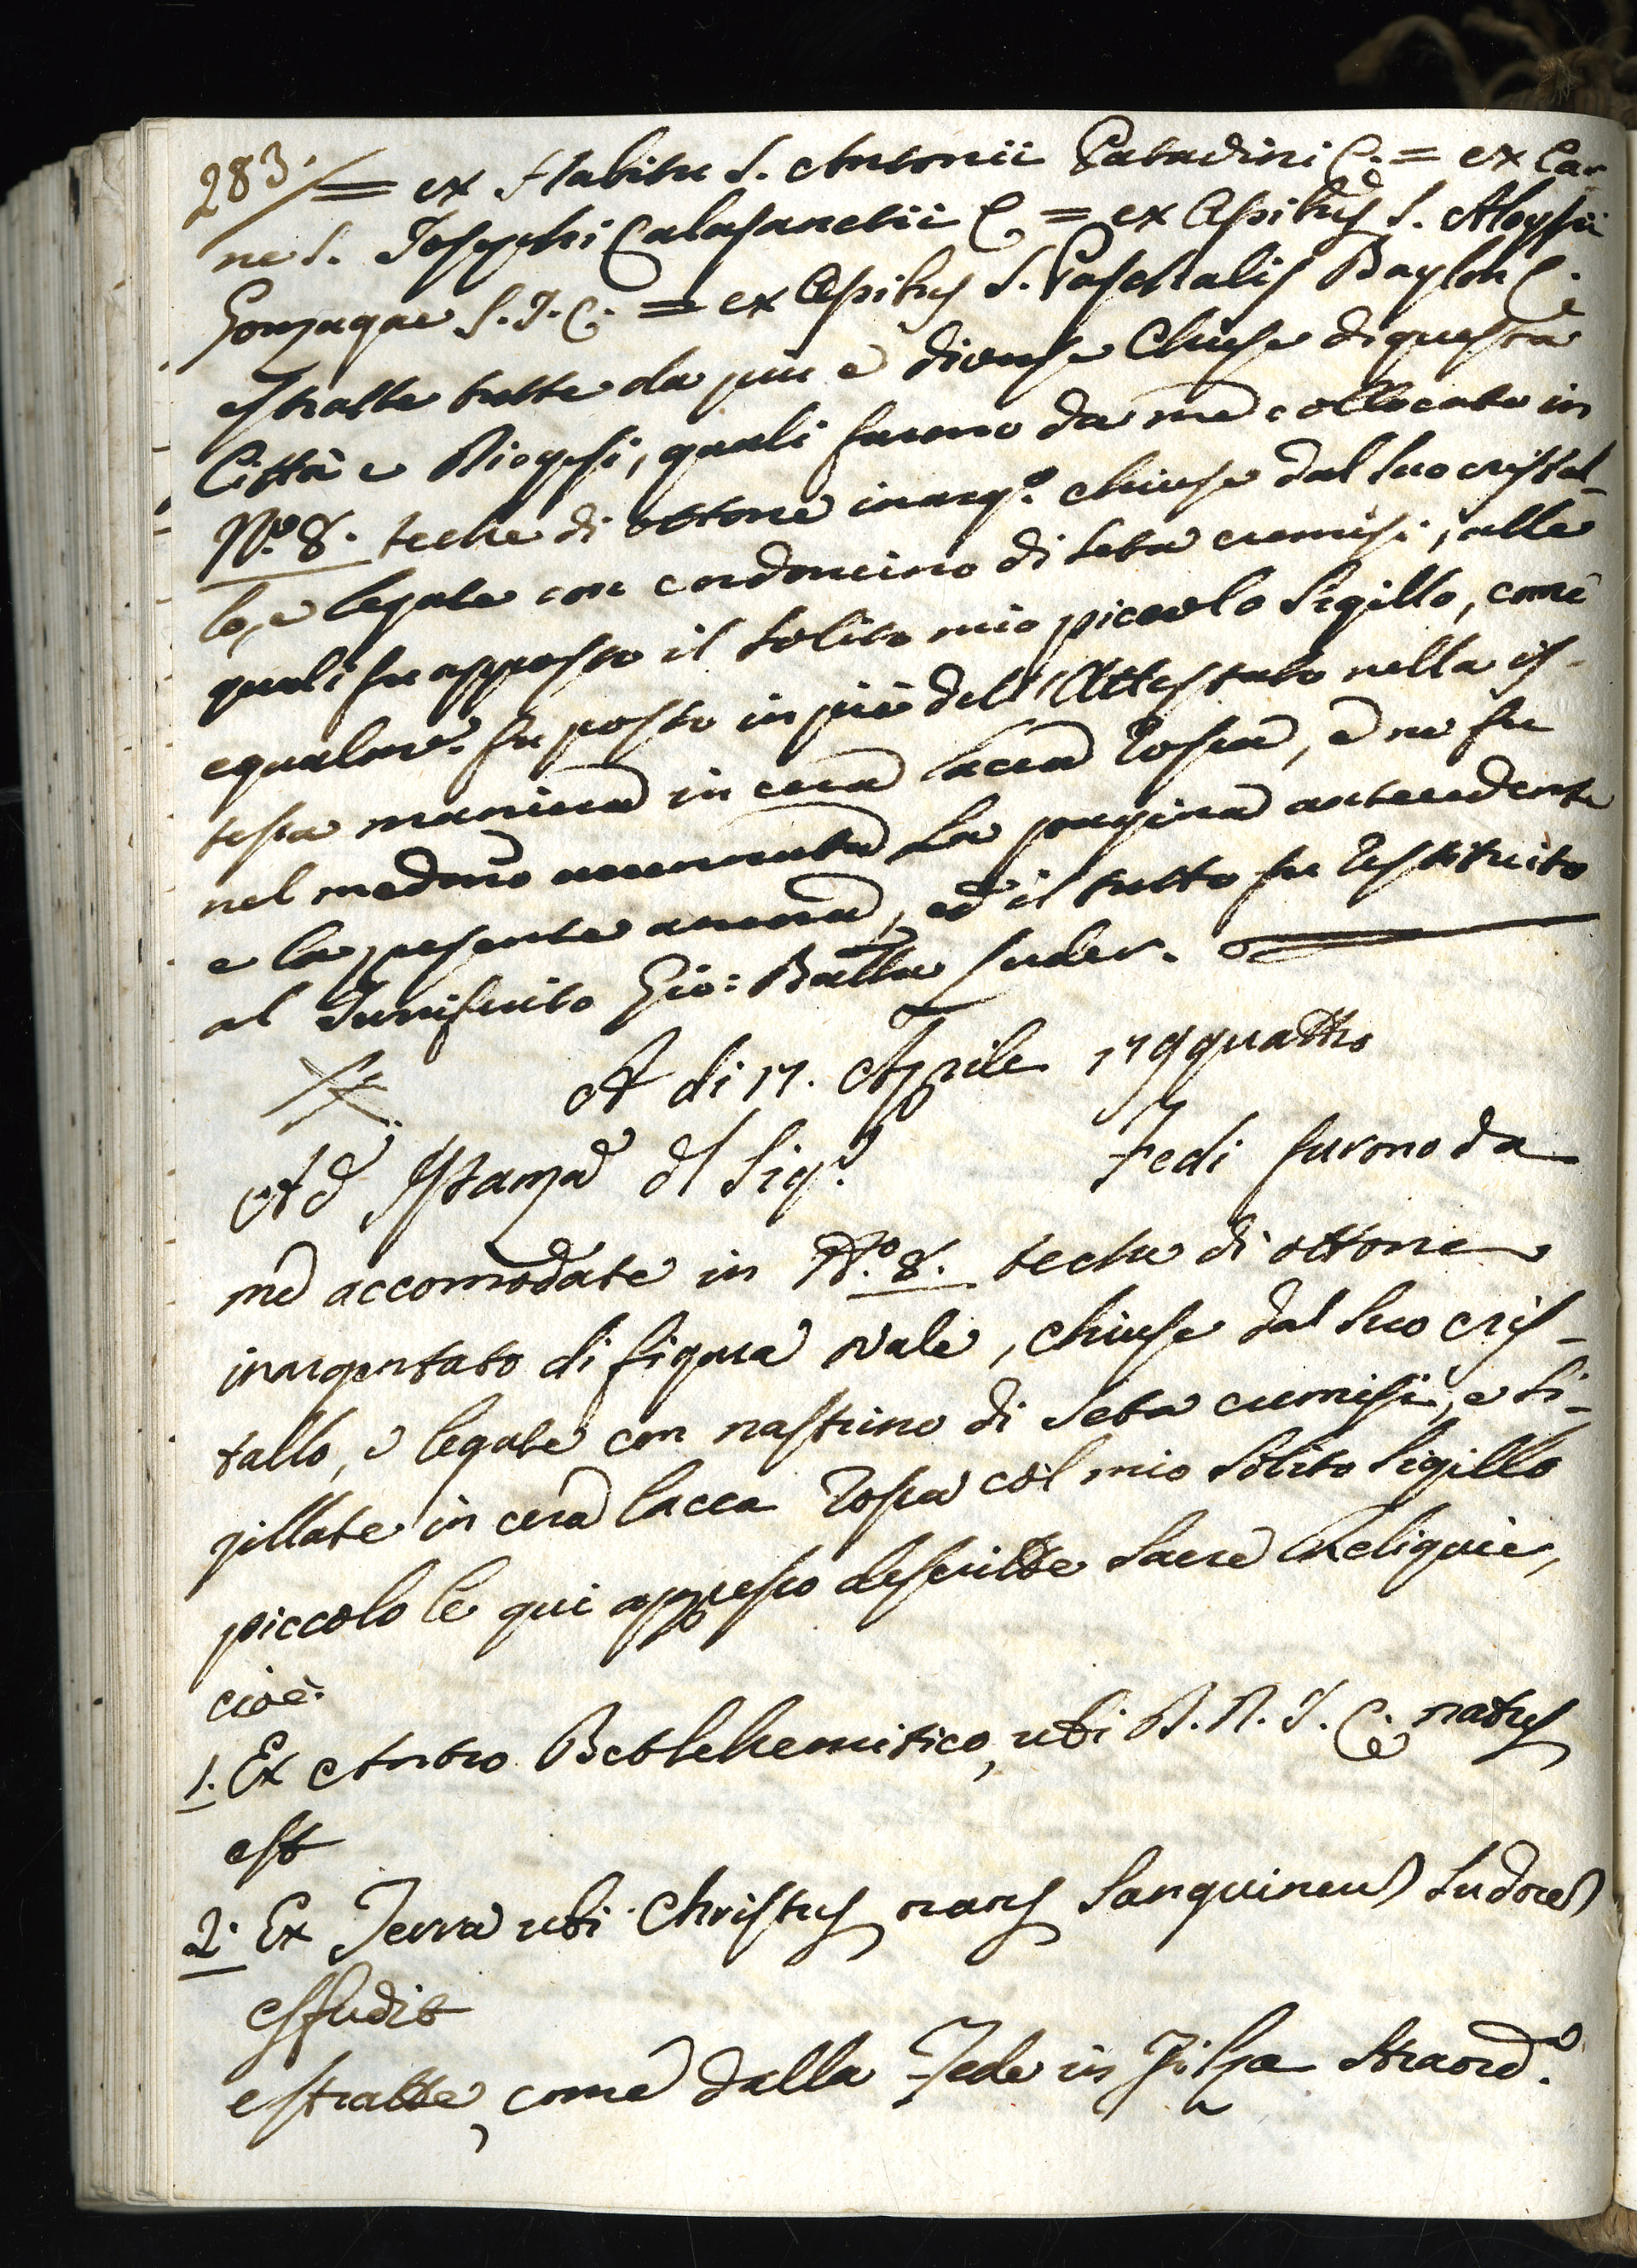 283. = ex Habitu S. Antonii Patavini C. = ex Car-
ne S. Josephi Calasanctii C. = ex Cąpitus S. Aloysii
Gonzagae S. J. C. = ex S. Paschalis Baylon C.
estratte tutte da più e diverse Chiese di questa
Città e Diogesi, quali furono da me collocate in
N.º 8. teche di ottone inarg.º chiuse dal suo cristal-
lo, e legate con cordoncino di seta cremisi, alle
quali fu apposto il solito mio piccolo Sigillo, come
egualm.e fu posto in piè dell'Attestato nella is-
tessa maniera in cera lacca rossa, e ne fu
nel medmo accennata La pagina antecedente
e la presente ancora, ed il tutto fu restituito
al Giovi: Batta suder.
A di 17. Aprile 179quattro
Ad Istanza dl Sig.r Fedi furono da
me accomodate in N.º 8. teche di ottone
inargentato di figura ovale, chiuse dal suo cris-
tallo, e legate con nastrino di seta cremisi, e si-
gillate in cera lacca rossa col mio solito Sigillo
piccolo le qui appresso descritte Sacre Reliquie,
cioè.
1. Ex Antro Bethlehemitico, ubi D. N. J. C. natus
est
2. Ex Terra ubi Christus orans Sanguineu Sudore
effudit
estratte, come dalla Fede in Filza Straord.e